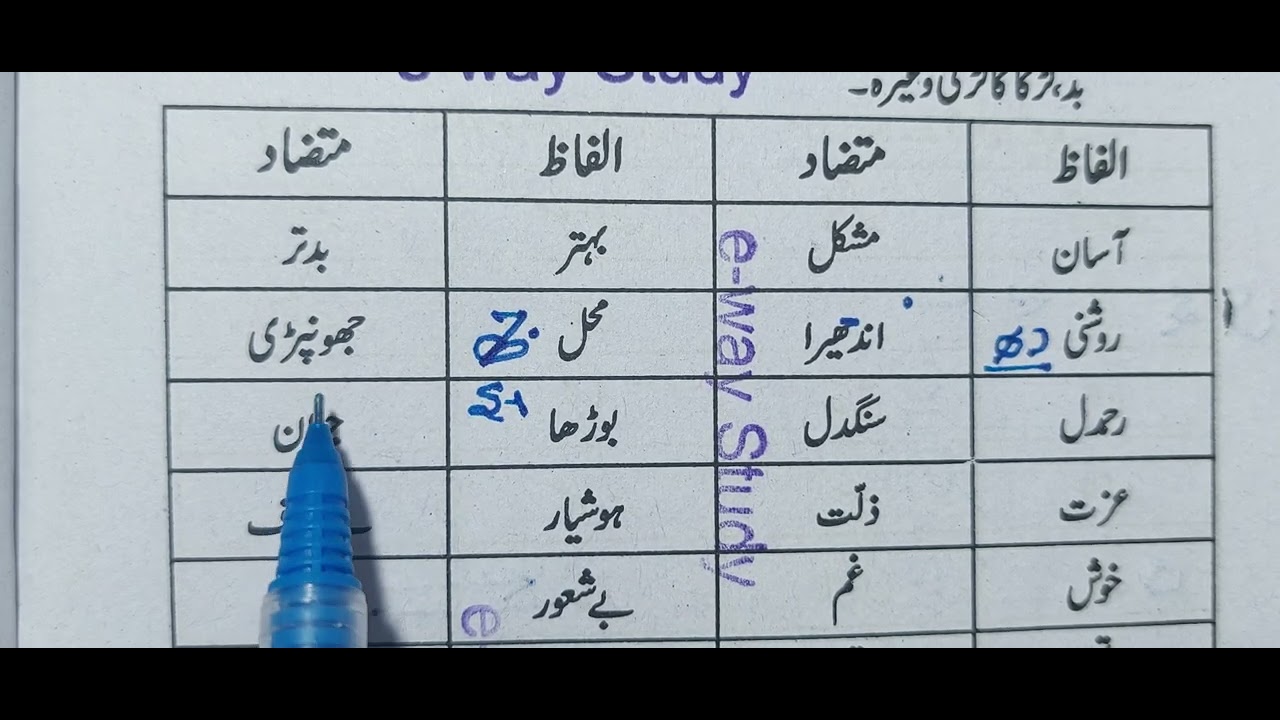 e-way Study
بد، لڑکا کا لڑکی وغیرہ۔
الفاظ متضاد الفاظ متضاد
آسان مشکل بہتر بدتر
روشنی اندھیرا محل جھونپڑی
رحمدل سنگدل بوڑھا
عزت ذلّت ہوشیار
خوش غم بے شعور
e-way Study
e